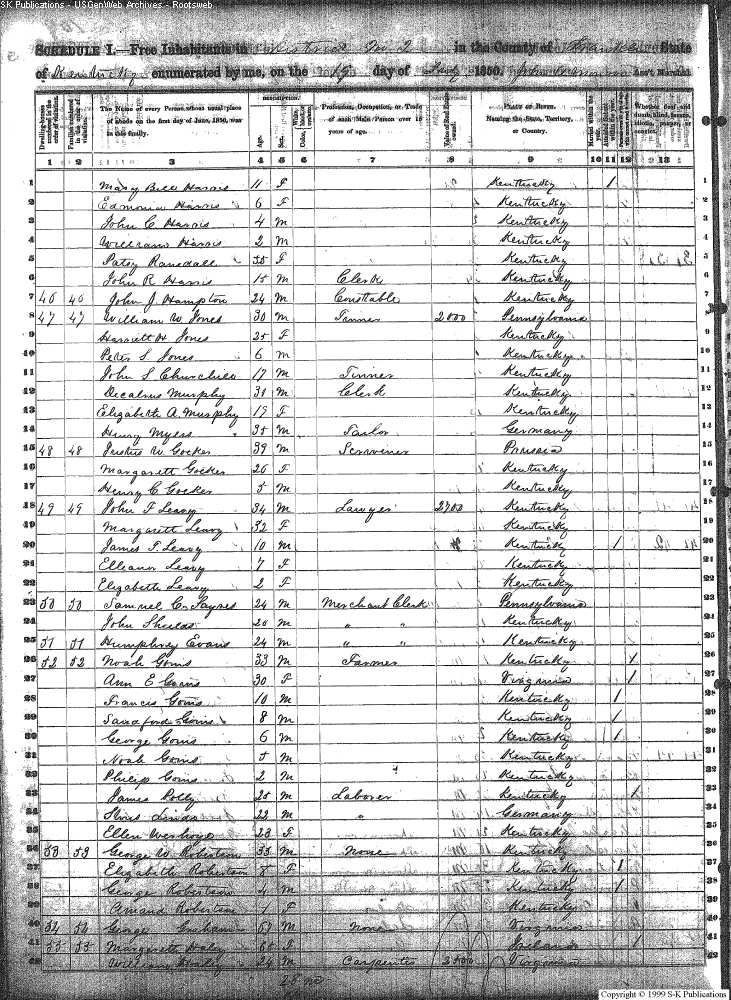 S-K Publications - USGenWeb Archives - Rootsweb
SCHEDULE I.—Free Inhabitants in District No 2 in the County of Franklin State
of Kentucky enumerated by me, on the 19 day of July 1850. Ass't Marshal
DESCRIPTION.
Dwelling-houses numbered in the order of visitation.
Families numbered in the order of visitation.
The Name of every Person whose usual place of abode on the first day of June, 1850, was in this family.
Age.
Sex.
Profession, Occupation, or Trade of each Male Person over 15 years of age.
Value of Real Estate owned.
PLACE OF BIRTH. Naming the State, Territory, or Country.
Married within the year.
Attended School within the year.
Whether deaf and dumb, blind, insane, idiotic, pauper, or convict.
1 2 3 4 5 6 7 8 9 10 11 12 13
1 Mary Bell Harris 11 F Kentucky 1 1
2 Edmonia Harris 6 F Kentucky 2
3 John C. Harris 4 M Kentucky 3
4 William Harris 2 M Kentucky 4
5 Patsy Ransdall 55 F Kentucky 5
6 John R Harris 15 M Clerk Kentucky 6
7 46 46 John J. Hampton 24 M Constable Kentucky 7
8 47 47 William W. Jones 30 M Tinner 2000 Pennsylvania 8
9 Harriett H. Jones 25 F Kentucky 9
10 Peter S. Jones 6 m Kentucky 10
11 John S Churchill 17 M Tinner Kentucky 11
12 Murphy 31 M Clerk Kentucky 12
13 Elizabeth A. Murphy 19 F Kentucky 13
14 Henry Myers 35 M Tailor Germany 14
15 48 48 Justus W. Gocker 39 M Scrivener Prussia 15
16 Margarett Gocker 26 F Kentucky 16
17 Henry C. Gocker 5 M Kentucky 17
18 49 49 John F Leavy 34 M Lawyer 2700 Kentucky 18
19 Margarett Leavy 32 F Kentucky 19
20 James T. Leavy 10 M Kentucky 1 20
21 Elleanor Leavy 7 F Kentucky 21
22 Elizabeth Leavy 2 F Kentucky 22
23 50 50 Samuel C. Sayres 24 M Merchant Clerk Pennsylvania 23
24 John Shields 20 M " " Kentucky 24
25 51 51 Humphrey Evans 24 M " " Kentucky 25
26 52 52 Noah Goins 33 M Farmer Kentucky 1 26
27 Ann E Goins 30 F Virginia 1 27
28 Francis Goins 10 M Kentucky 1 28
29 Sandford Goins 8 M Kentucky 1 29
30 George Goins 6 M Kentucky 1 30
31 Noah Goins 5 M Kentucky 31
32 Philip Goins 2 M Kentucky 32
33 James Polly 25 M Laborer Kentucky 1 33
34 22 M " Germany 34
35 Ellen 23 F Kentucky 35
36 53 53 George W. Robertson 33 M None Kentucky 36
37 Elizabeth Robertson 8 F Kentucky 1 37
38 George Robertson 4 M Kentucky 1 38
39 Robertson 1 F Kentucky 39
40 54 54 George Graham 67 M None Virginia 40
41 55 55 Margarett Haly 65 F Ireland 1 41
42 William Haly 24 M Carpenter 2500 Virginia 42
Copyright © 1999 S-K Publications